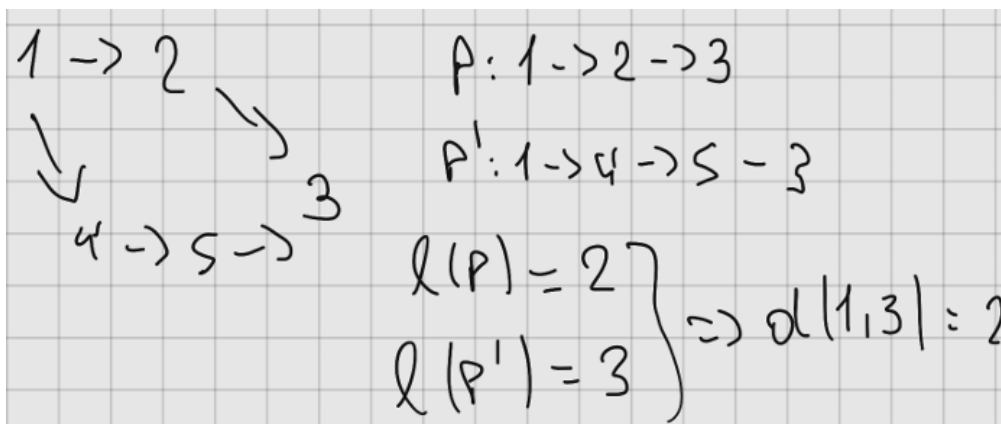 1 -> 2
4 -> 5 -> 3
P: 1 -> 2 -> 3
P': 1 -> 4 -> 5 - 3
l(P) = 2
l(P') = 3
=> d(1,3) = 2